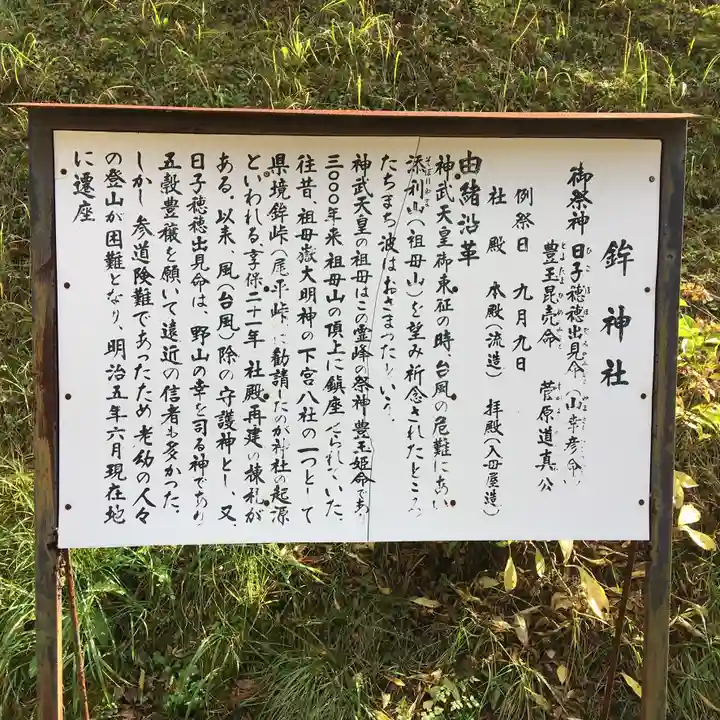 鉾神社
御祭神 日子穂穂出見命(山幸彦命)
豊玉昆売命 菅原道真公
例祭日 九月九日
社殿 本殿(流造) 拝殿(入母屋造)
由緒沿革
神武天皇御東征の時、台風の危難にあい
添利山(祖母山)を望み祈念されたところ
たちまち波はおさまったという。
神武天皇の祖母はこの霊峰の祭神豊玉姫命であり
三〇〇〇年来祖母山の頂上に鎮座せられていた。
往昔、祖母嶽大明神の下宮八社の一つとして
県境鉾峠(尾平峠)に勧請したのが神社の起源
といわれる、享保二十一年 社殿再建の棟札が
ある。以来 風(台風)除の守護神とし、又、
日子穂穂出見命は、野山の幸を司る神であり
五穀豊穣を願いて遠近の信者も多かった。
しかし参道険難であったため老幼の人々
の登山が困難となり、明治五年六月現在地
に遷座